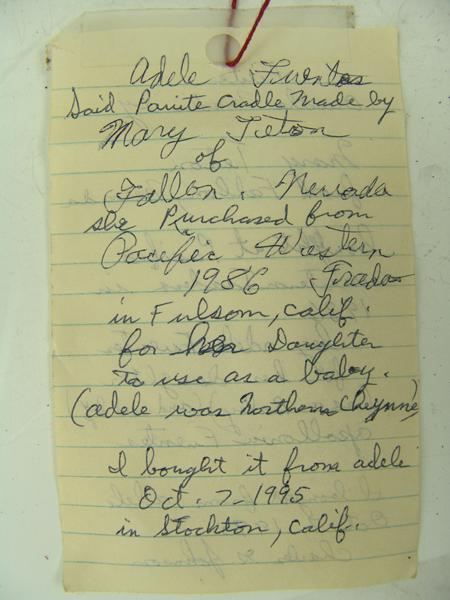 Adele Fuentes
Said Paiute Cradle Made by
Mary Teton
of
Fallon. Nevada
she Purchased from
Pacific Western
1986 Trade
in Fulsom, Calif.
for her Daughter
to use as a baby.
(adele was Northern Cheynne)
I bought it from adele
Oct. 7-1995
in Stockton, Calif.